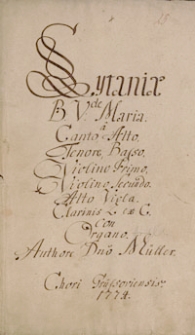 Lytaniæ
B. V. de Maria.
à
Canto Alto.
Tenore, Basso,
Violino Primo,
Violino Secundo.
Alto Viola.
Clarinis 2. ex C.
Con
Organo.
Authore Dnō Müller.
Chori
1774.